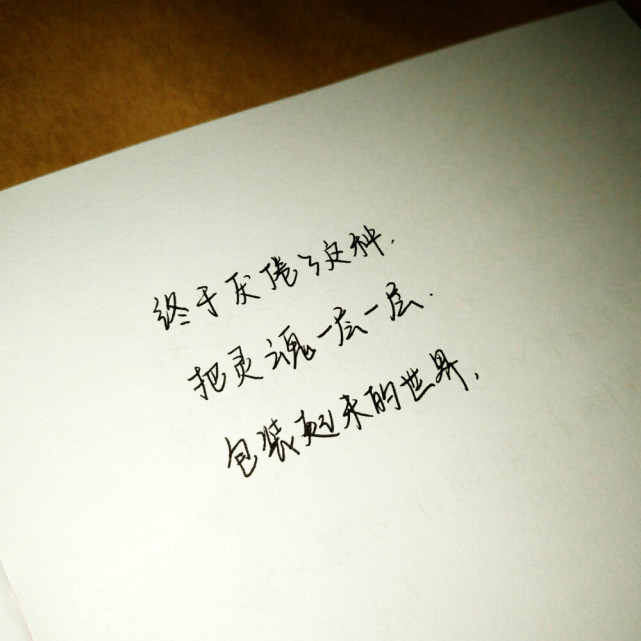 终于厌倦了这种.
把灵魂一层一层.
包装起来的世界.